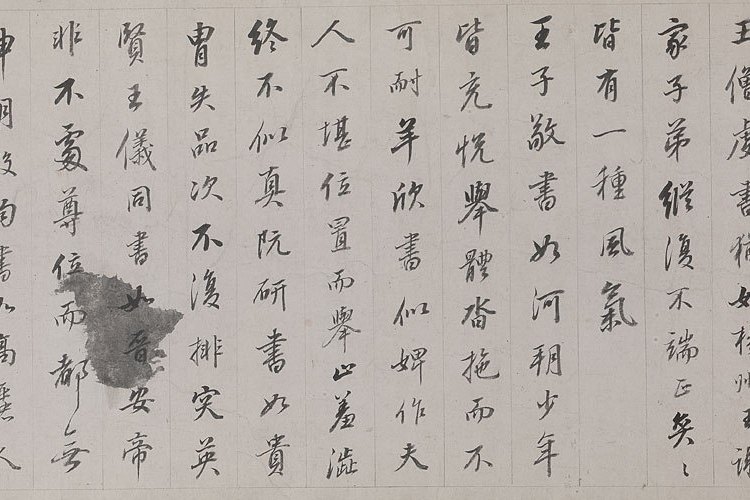 王僧虔書猶如揚州王謝
家子弟縱復不端正奕〻
皆有一種風氣
王子敬書如河朔少年
皆充悦舉體沓拖而不
可耐羊欣書似婢作夫
人不堪位置而舉止羞澁
終不似真阮研書如貴
胄失品次不復排突英
賢王儀同書如晉安帝
非不處尊位而都無
神明殷鈞書如高麗人